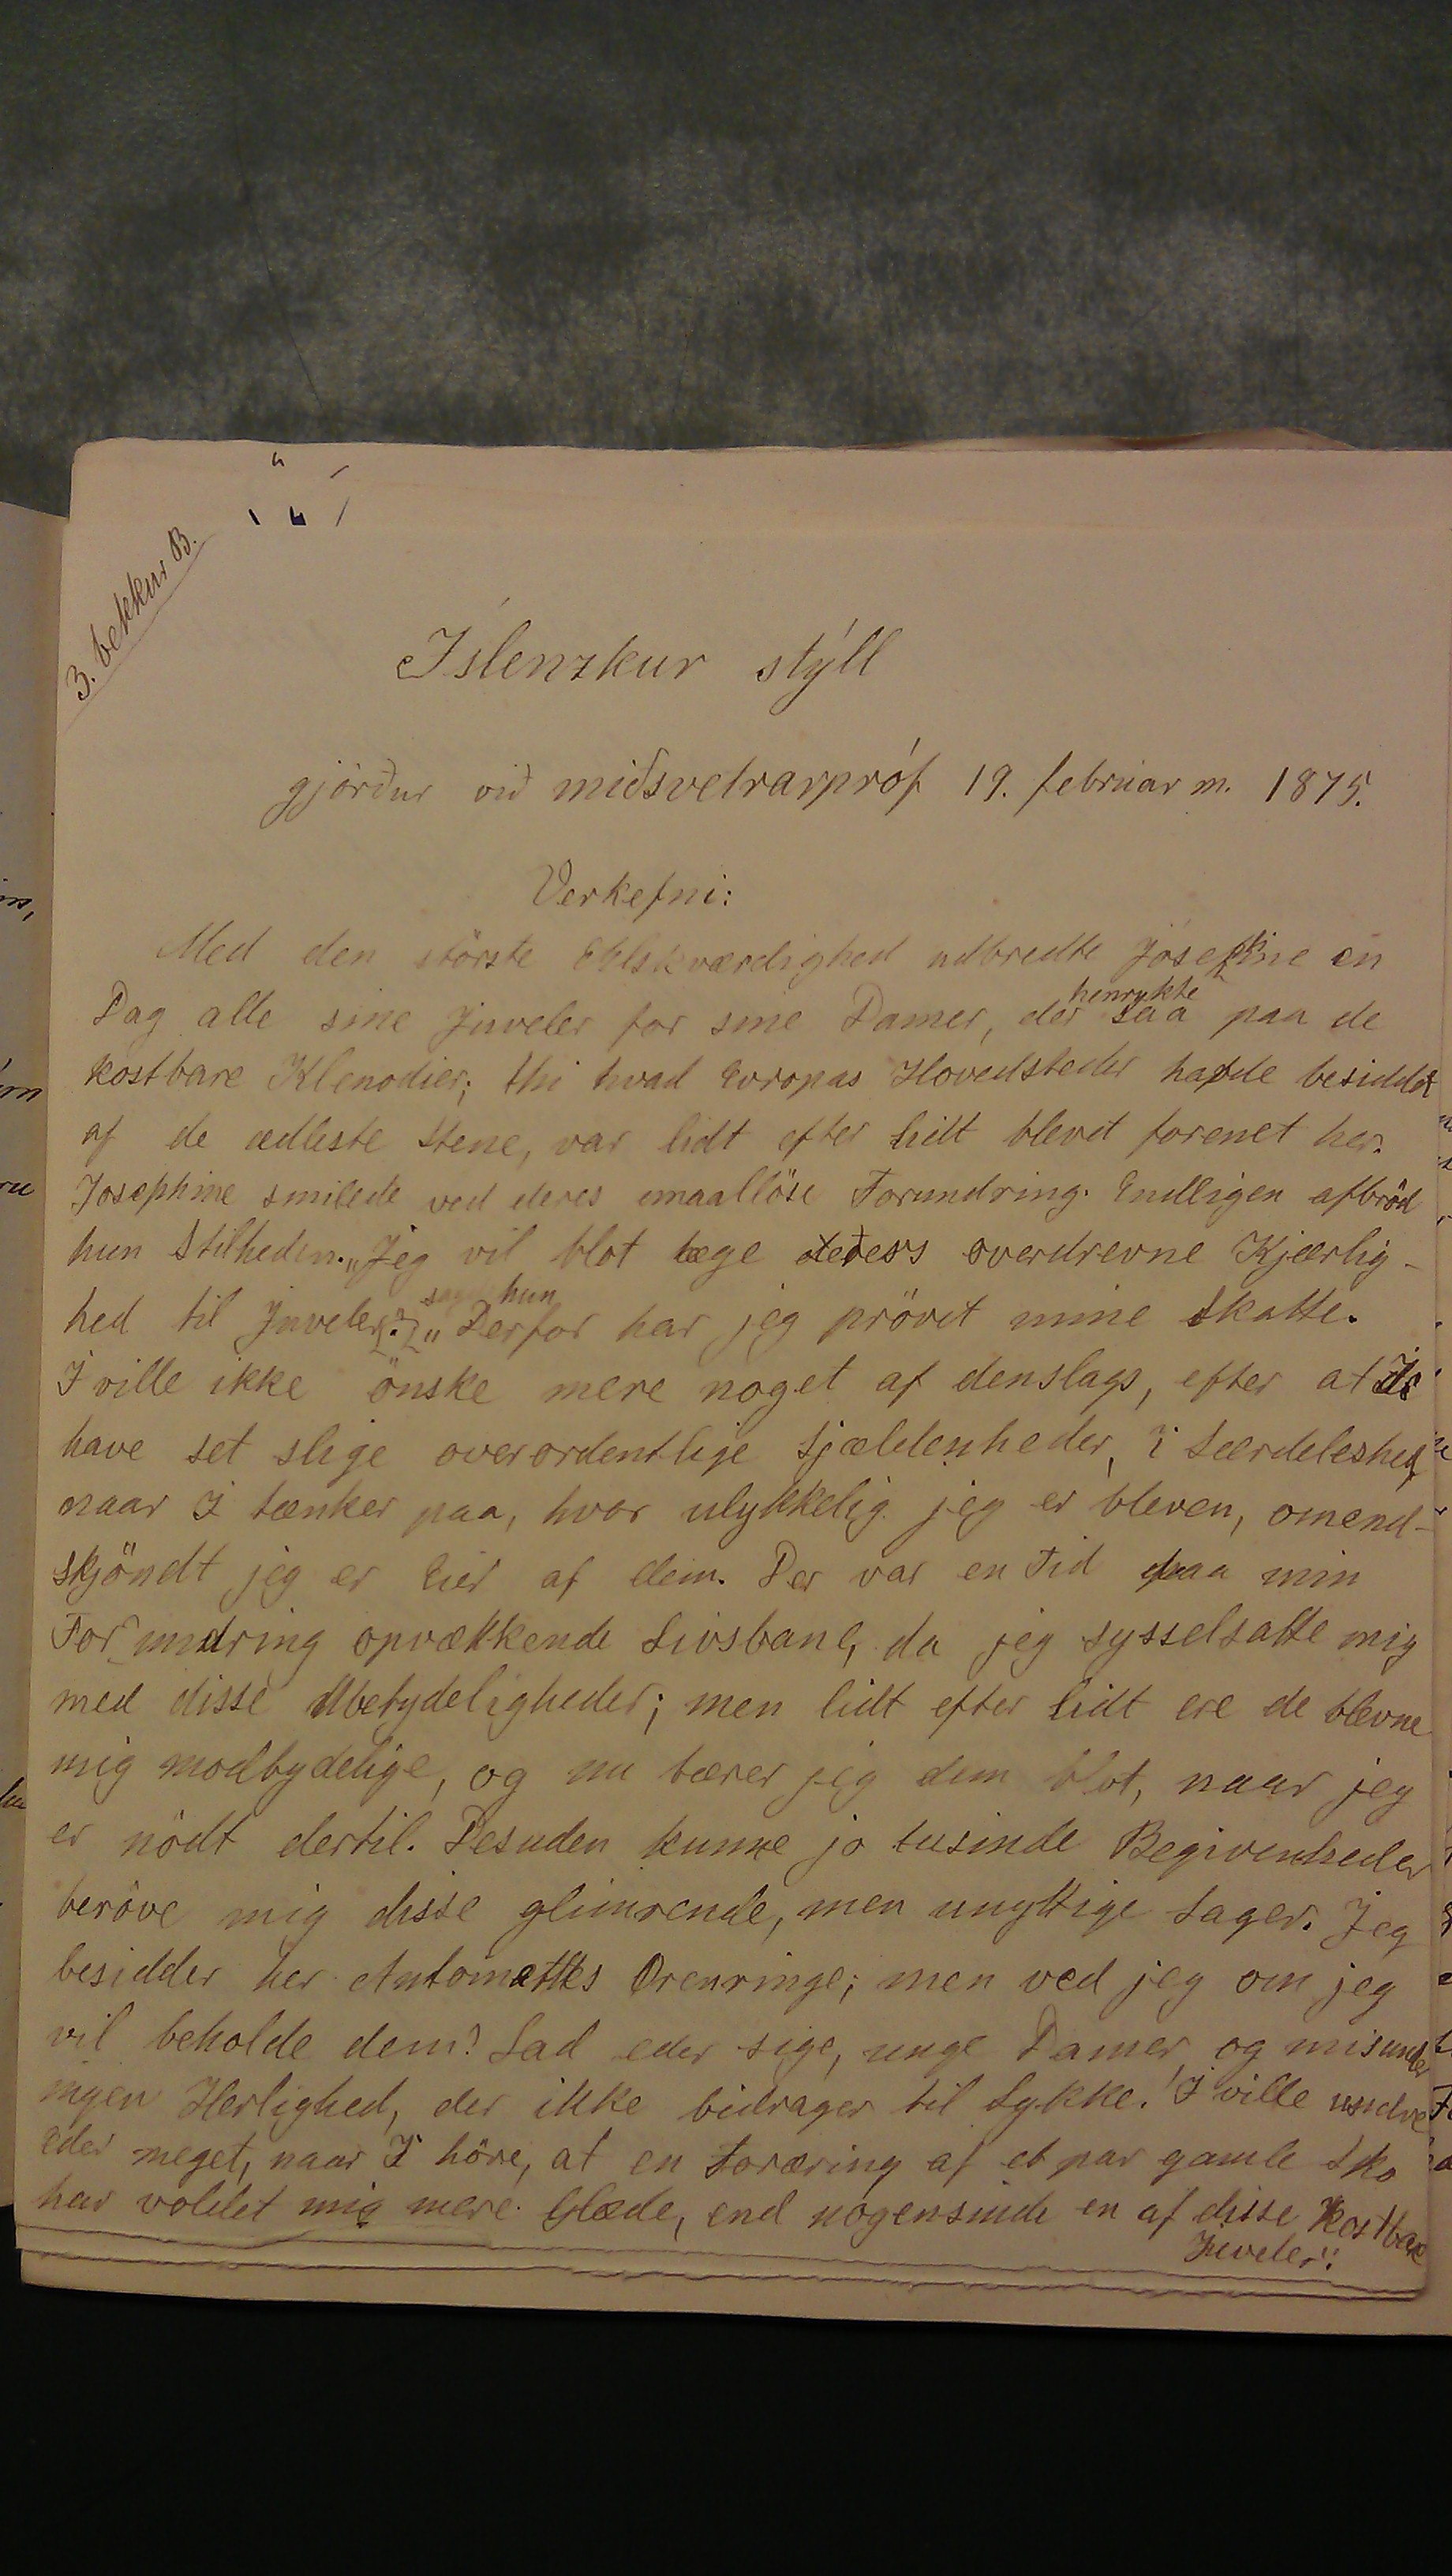 3. bekkur B.
Íslenzkur stýll
gjörður við miðsvetrarpróf 19. februar m. 1875.
Verkefni:
Med den störste Elskværdighed udbredte Josephine en
Dag alle sine Juveler for sine Damer, der henrykte saa paa de
kostbare Klenodier; thi hvad Evropas Hovedsteder havde besiddet
af de ædleste Stene, var lidt efter lidt blevet forenet her.
Josephine smilede ved deres umaallöse Forundring. Endligen afbröd
hun Stilheden. „Jeg vil blot læge deres overdrevne Kjærlig-
hed til Juveler." sagde hun „Derfor har jeg prövet mine Skatte.
I ville ikke önske mere noget af denslags, efter at I
have set slige overordentlige Sjældenheder, i Særdeleshed
naar I tænker paa, hvor ulykkelig jeg er bleven, omend-
skjöndt jeg er Eier af dem. Der var en Tid paa min
Forundring opvækkende Livsbane, da jeg sysselsatte mig
med disse Ubetydeligheder; men lidt efter lidt ere de blevne
mig modbydelige, og nu bærer jeg dem blot, naar jeg
er nödt dertil. Desuden kunne jo tusinde Begivenheder
beröve mig disse glimrende, men unyttige Sager. Jeg
besidder her Antomettes Örenringe; men ved jeg om jeg
vil beholde dem? Lad eder sige, unge Damer, og misunder
ingen Herlighed, der ikke bidrager til Lykke! I ville undre
Eder meget, naar I höre, at en Foræring af et par gamle Sko
har voldet mig mere Glæde, end nogensinde en af disse kostbare
Juveler".